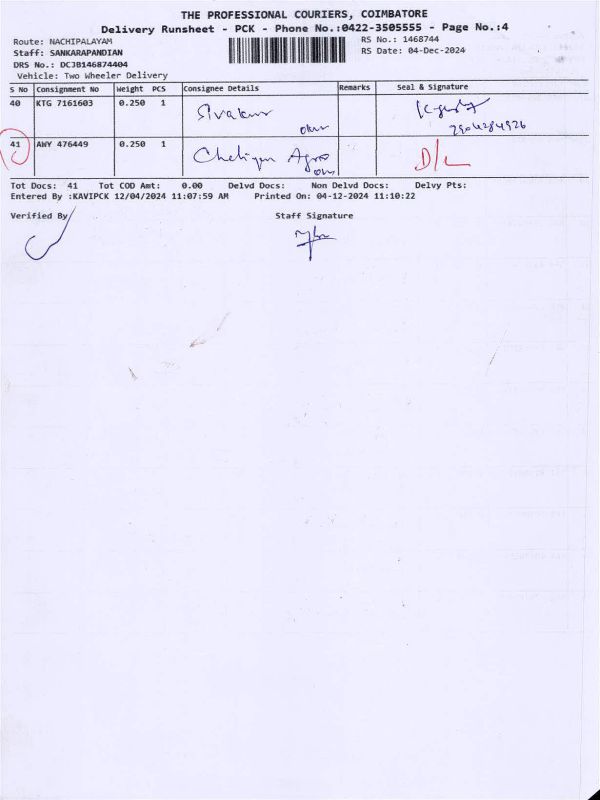 THE PROFESSIONAL COURIERS, COIMBATORE
Delivery Runsheet - PCK - Phone No.:0422-3505555 - Page No.:4
Route: NACHIPALAYAM RS No.: 1468744
Staff: SANKARAPANDIAN RS Date: 04-Dec-2024
DRS No.: DCJB146874404
Vehicle: Two Wheeler Delivery
S No Consignment No Weight PCS Consignee Details Remarks Seal & Signature
40 KTG 7161603 0.250 1
41 AWY 476449 0.250 1 D/L
Tot Docs: 41 Tot COD Amt: 0.00 Delvd Docs: Non Delvd Docs: Delvy Pts:
Entered By :KAVIPCK 12/04/2024 11:07:59 AM Printed On: 04-12-2024 11:10:22
Verified By Staff Signature